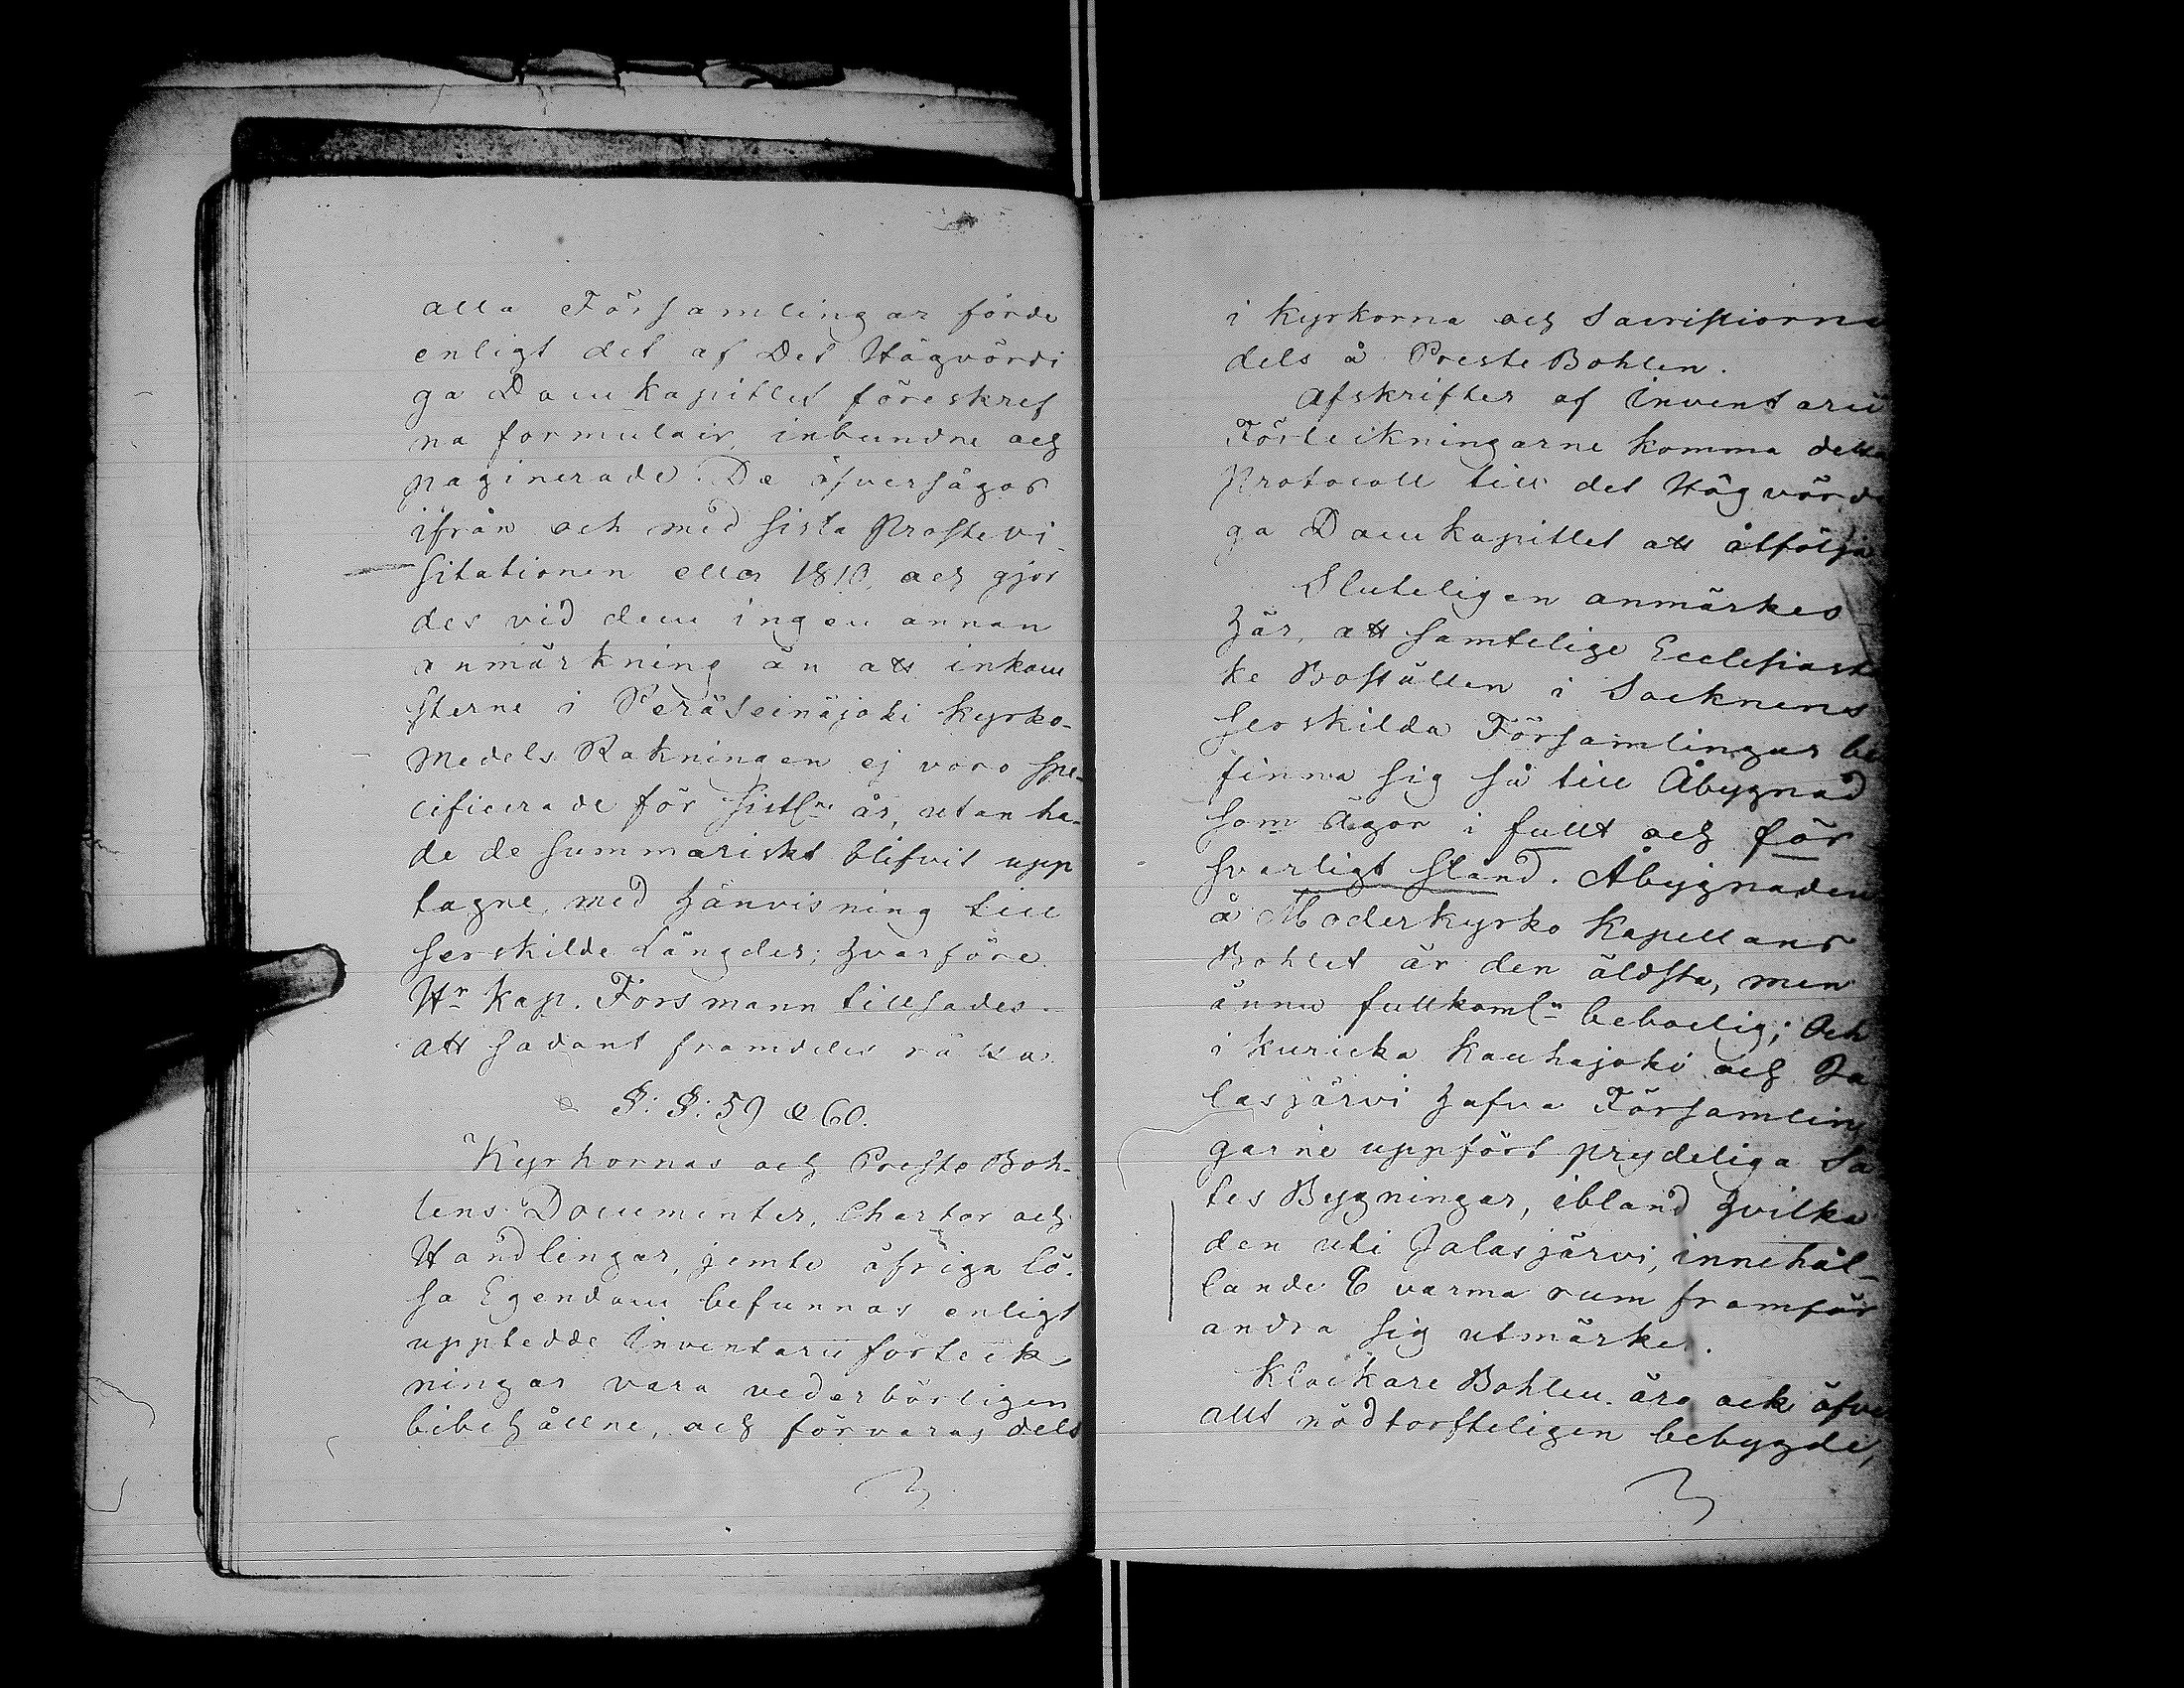 alla Församlingar förde
enligt det af Det Högvördi
ga DomKapitlet föreskref
na formulair, inbundne och
paginerade. De öfversågos
ifrån och med sista Prostevi-
sitationen eller 1810, och gjor
des vid dem ingen annan
anmärkning än att inkom
sterne i Peräseinäjoki Kyrko-
medels Räkningen ej voro spe-
cificerade för sistl:ne år, utan ha-
de de summariskt blifvit upp
tagne, med hänvisning till
serskilde Längder; hvarföre
Hr Kap. Forsmann tillsades
att sådant framdeles rätta.
§: §: 59 & 60.
Kyrkornas och PresteBoh-
lens Documenter, Chartor och
Handlingar, jemte öfriga lö-
sa Egendom befunnos enligt
uppledde Inventarii förteck-
ningar vara vederbörligen
bibehållne, och förvaras dels
i Kyrkorna och Sacristiorna
dels å PresteBohlen.
Afskrifter af Inventarii
Förteckningarne komma detta
Protocoll till det Högvördi
ga DomKapitlet att åtfölja
Sluteligen anmärkes
här, att samtelige Ecclesiasti
ke Boställen i Socknens
serskilda Församlingar be
finna sig så till Åbygnad
som Ägor i fullt och för
svarligt stånd. Åbygnaden
å Moderkyrko Kapellans
Bohlet är den äldsta, men
ännu fullkoml:n beboelig; Och
i Kuricka Kauhajoki och Ja
lasjärvi hafva Församlin
garne uppfört prydeliga Sä
tes Bygningar, ibland hvilka
den uti Jalasjärvi, innehål-
lande 6 varma rum framför
andra sig utmärker.
Klockare Bohlen äro ock öfver
allt nödtorfteligen bebygde,